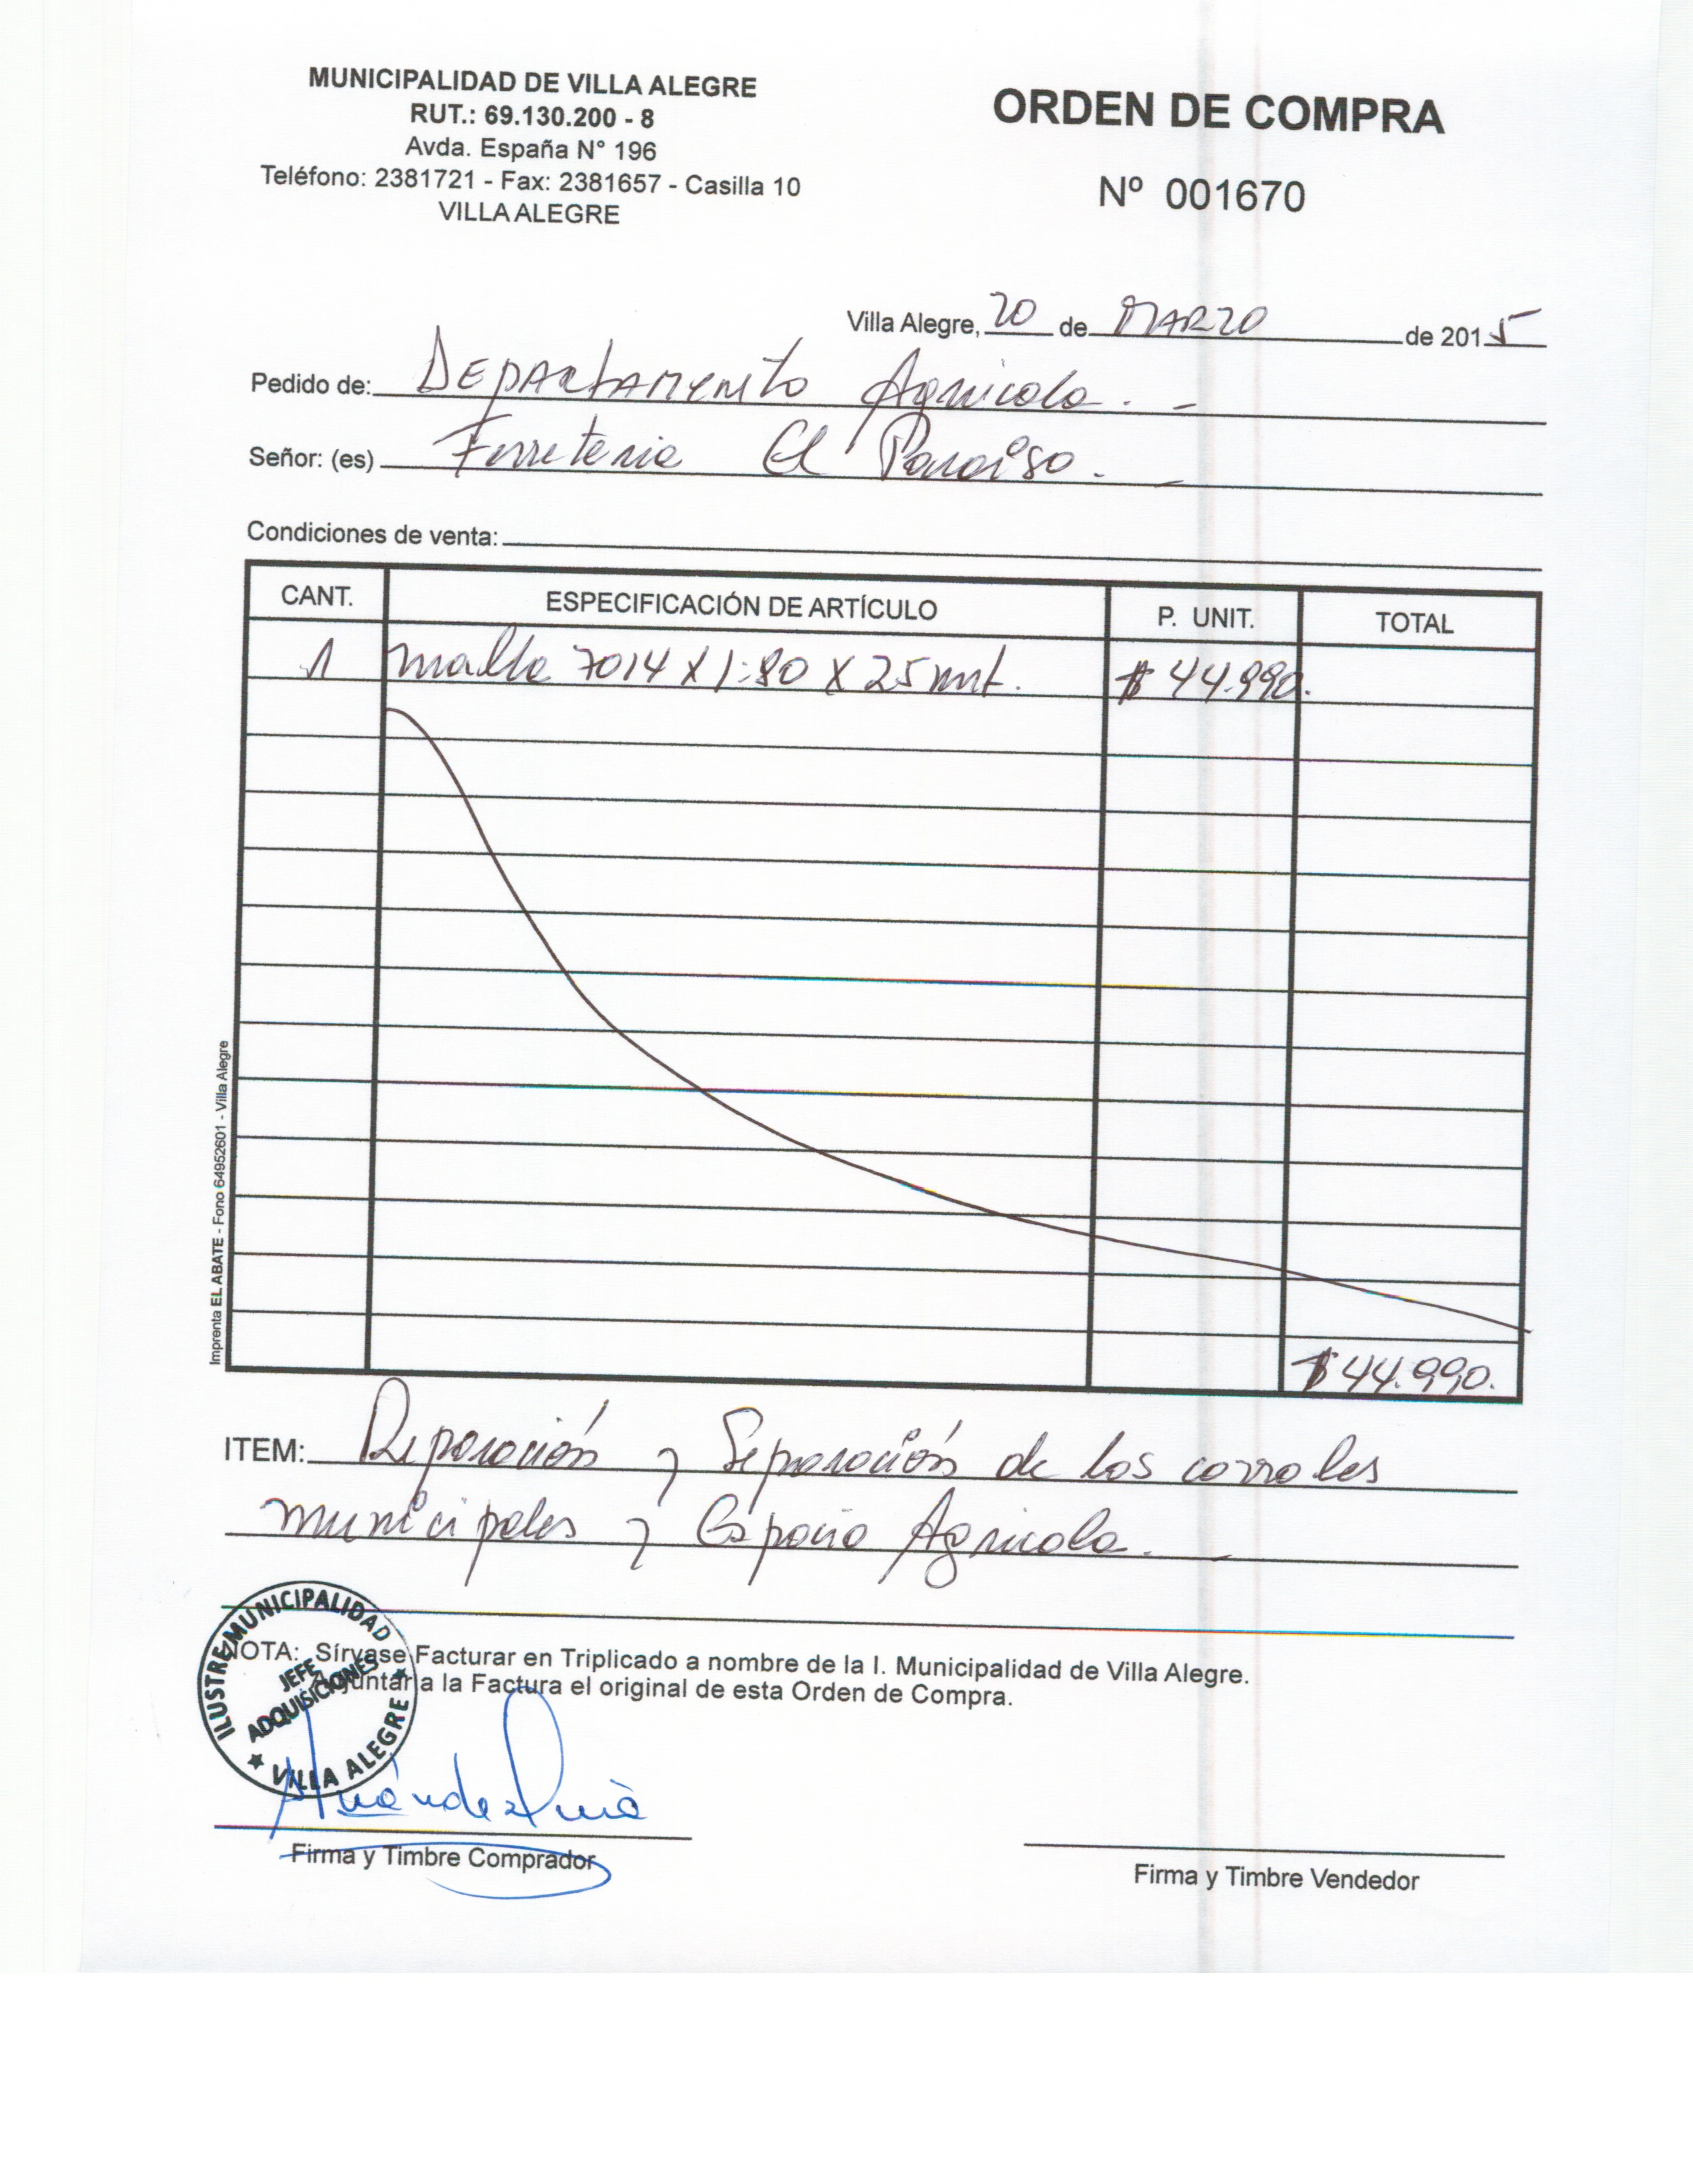 MUNICIPALIDAD DE VILLA ALEGRE
RUT.: 69.130.200 - 8
Avda. España N° 196
Teléfono: 2381721 - Fax: 2381657 - Casilla 10
VILLA ALEGRE
ORDEN DE COMPRA
Nº 001670
Villa Alegre, 20 de MARZO de 2015
Pedido de: Departamento Agricola. -
Señor: (es) Ferreteria El Paraiso. -
Condiciones de venta:
CANT. ESPECIFICACIÓN DE ARTÍCULO P. UNIT. TOTAL
1 malla 7014 X 1:80 X 25 mt. $ 44.990.
$ 44.990.
Imprenta EL ABATE - Fono 64952601 - Villa Alegre
ITEM: Reparación y Separación de los corrales
municipales y Espacio Agricola. -
NOTA: Sírvase Facturar en Triplicado a nombre de la I. Municipalidad de Villa Alegre.
Adjuntar a la Factura el original de esta Orden de Compra.
ILUSTRE MUNICIPALIDAD
JEFE
ADQUISICIONES
★ VILLA ALEGRE ★
Firma y Timbre Comprador
Firma y Timbre Vendedor